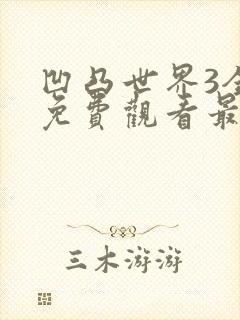 凹凸世界3全
免費觀看最
三木游游